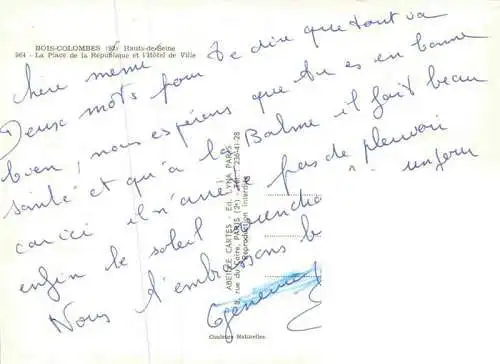 BOIS-COLOMBES (92) Hauts-de-Seine
964 - La Place de la République et l'Hôtel de Ville
Chère mémé
Deux mots pour te dire que tout va
bien, nous espérons que tu es en bonne
santé et qu'à la Balme il fait beau
car ici il n'arrête pas de pleuvoir
enfin le soleil
Nous t'embrassons
ABEILLE CARTES - Ed. LYNA PARIS
8, rue du Caire, PARIS (2e) - Tél. 236-41-28
Reproduction interdite
Couleurs Naturelles